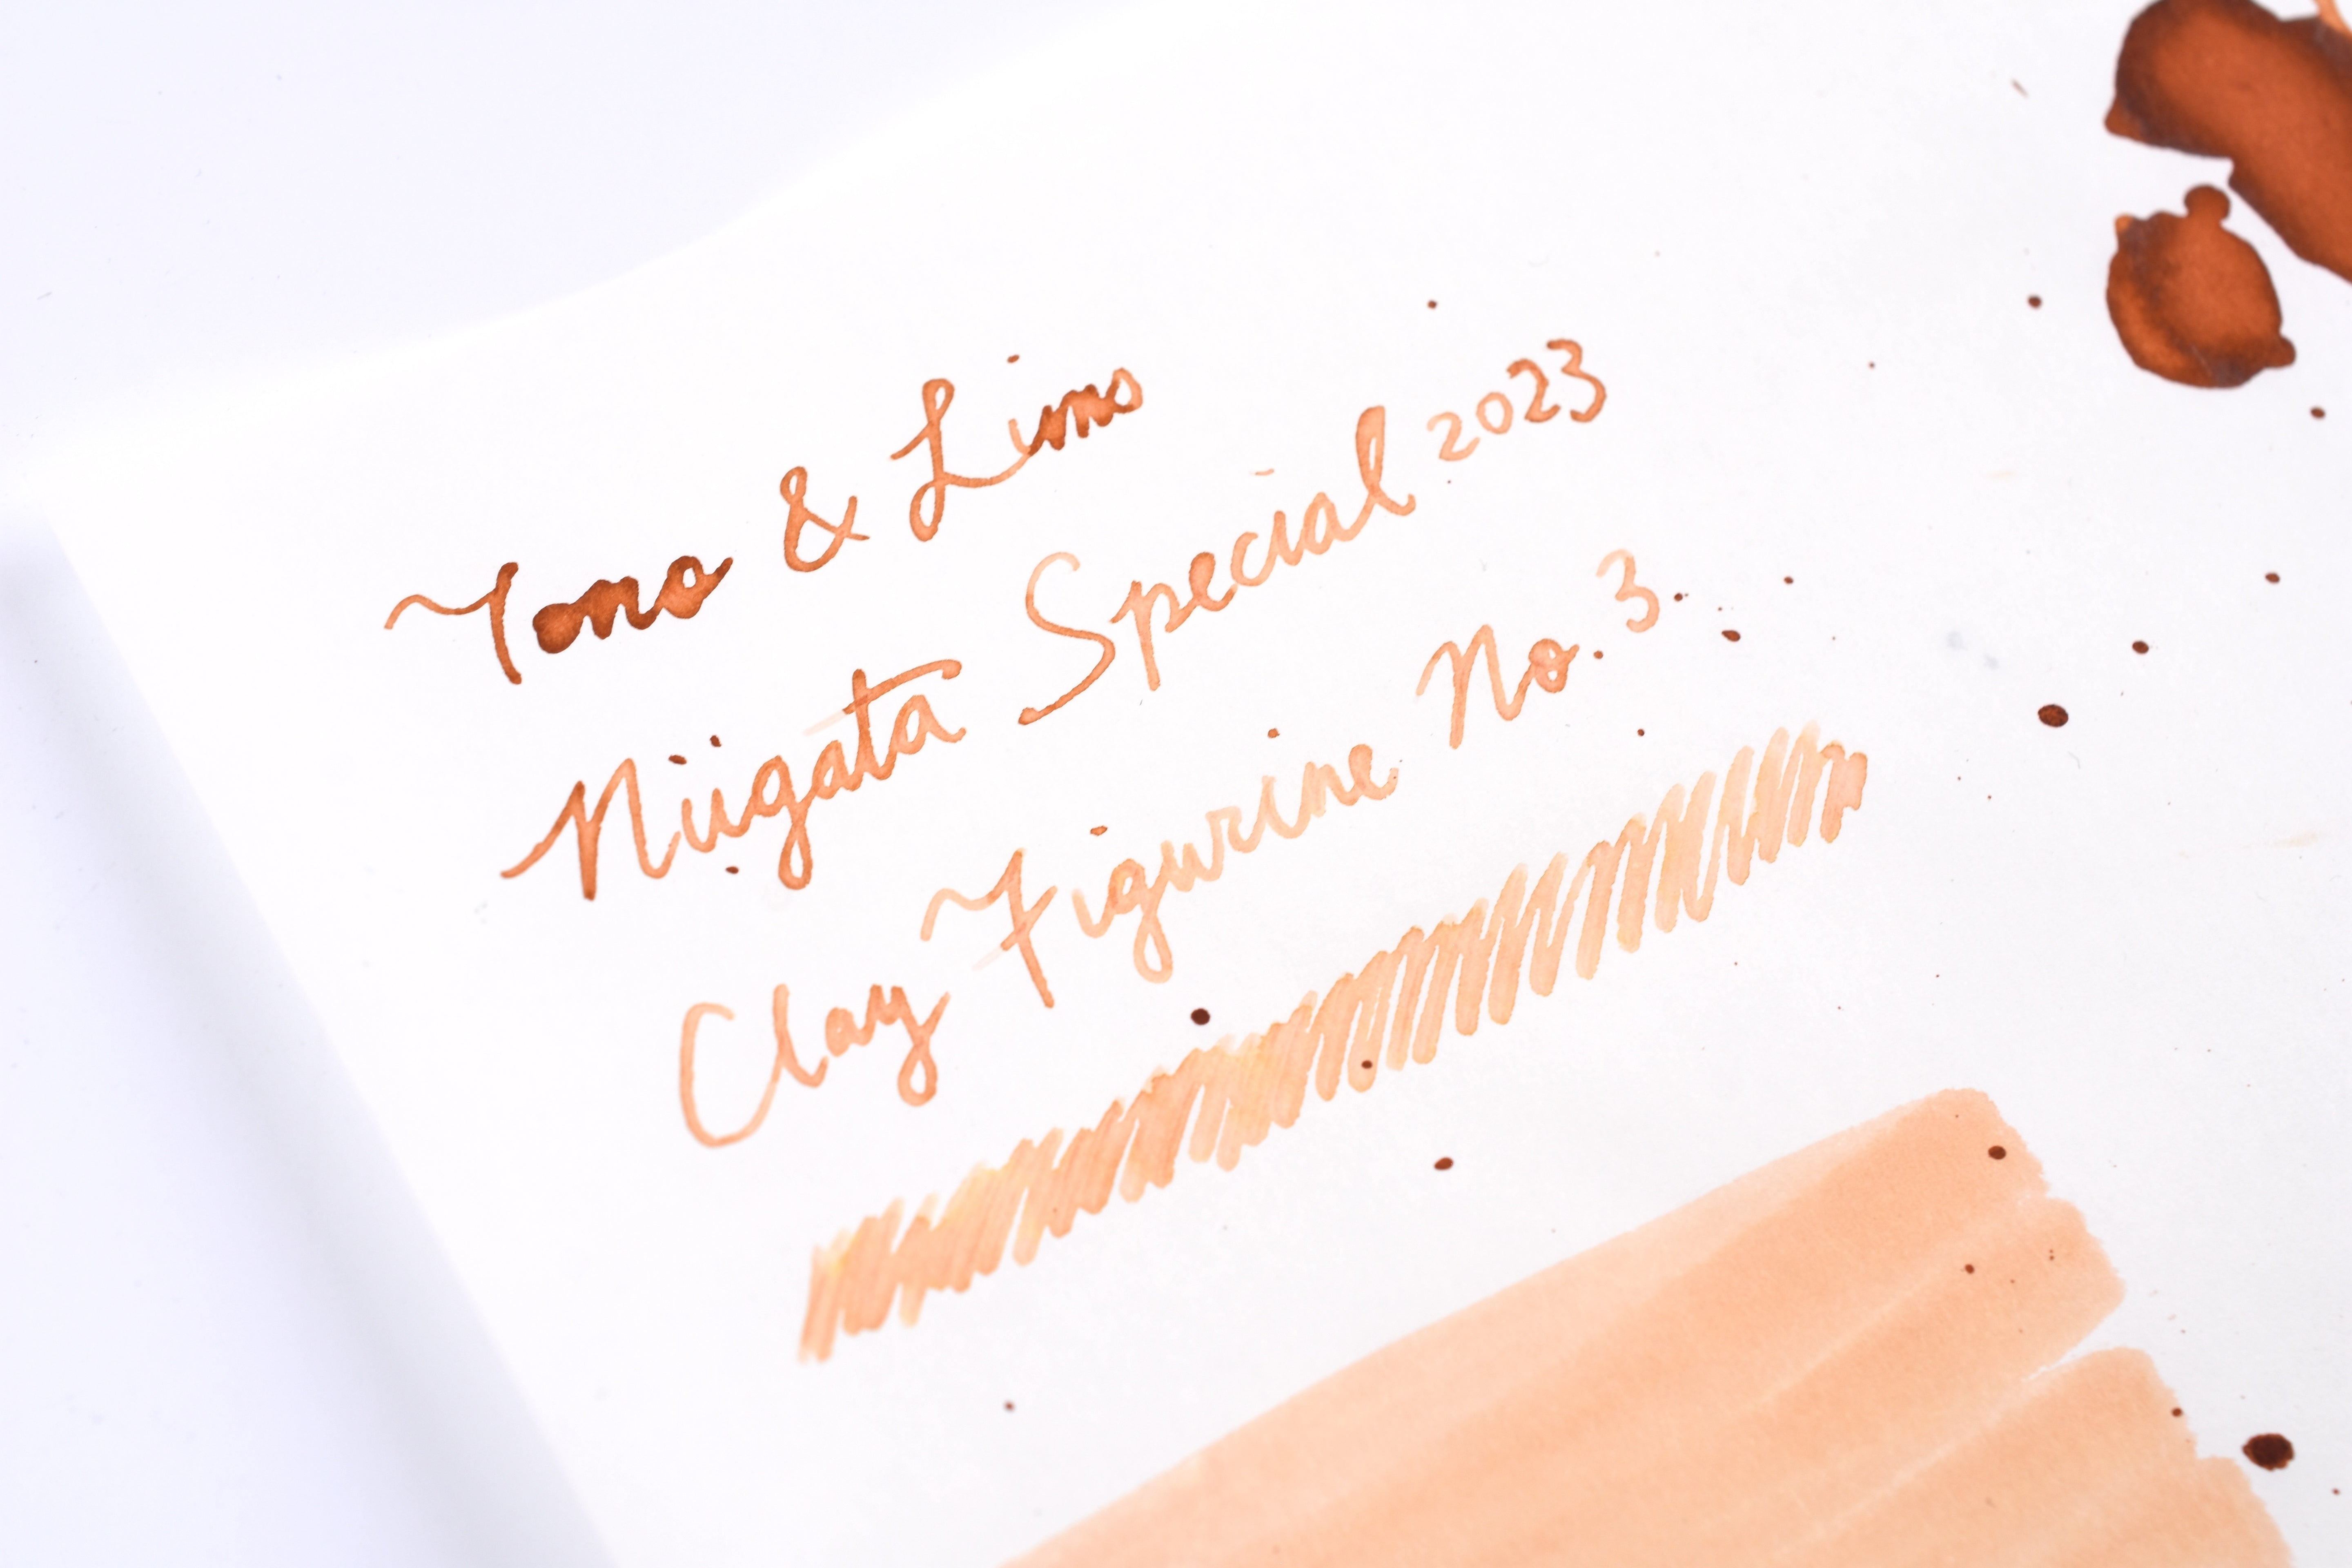 Tono & Lims
Niigata Special 2023
Clay Figurine No. 3